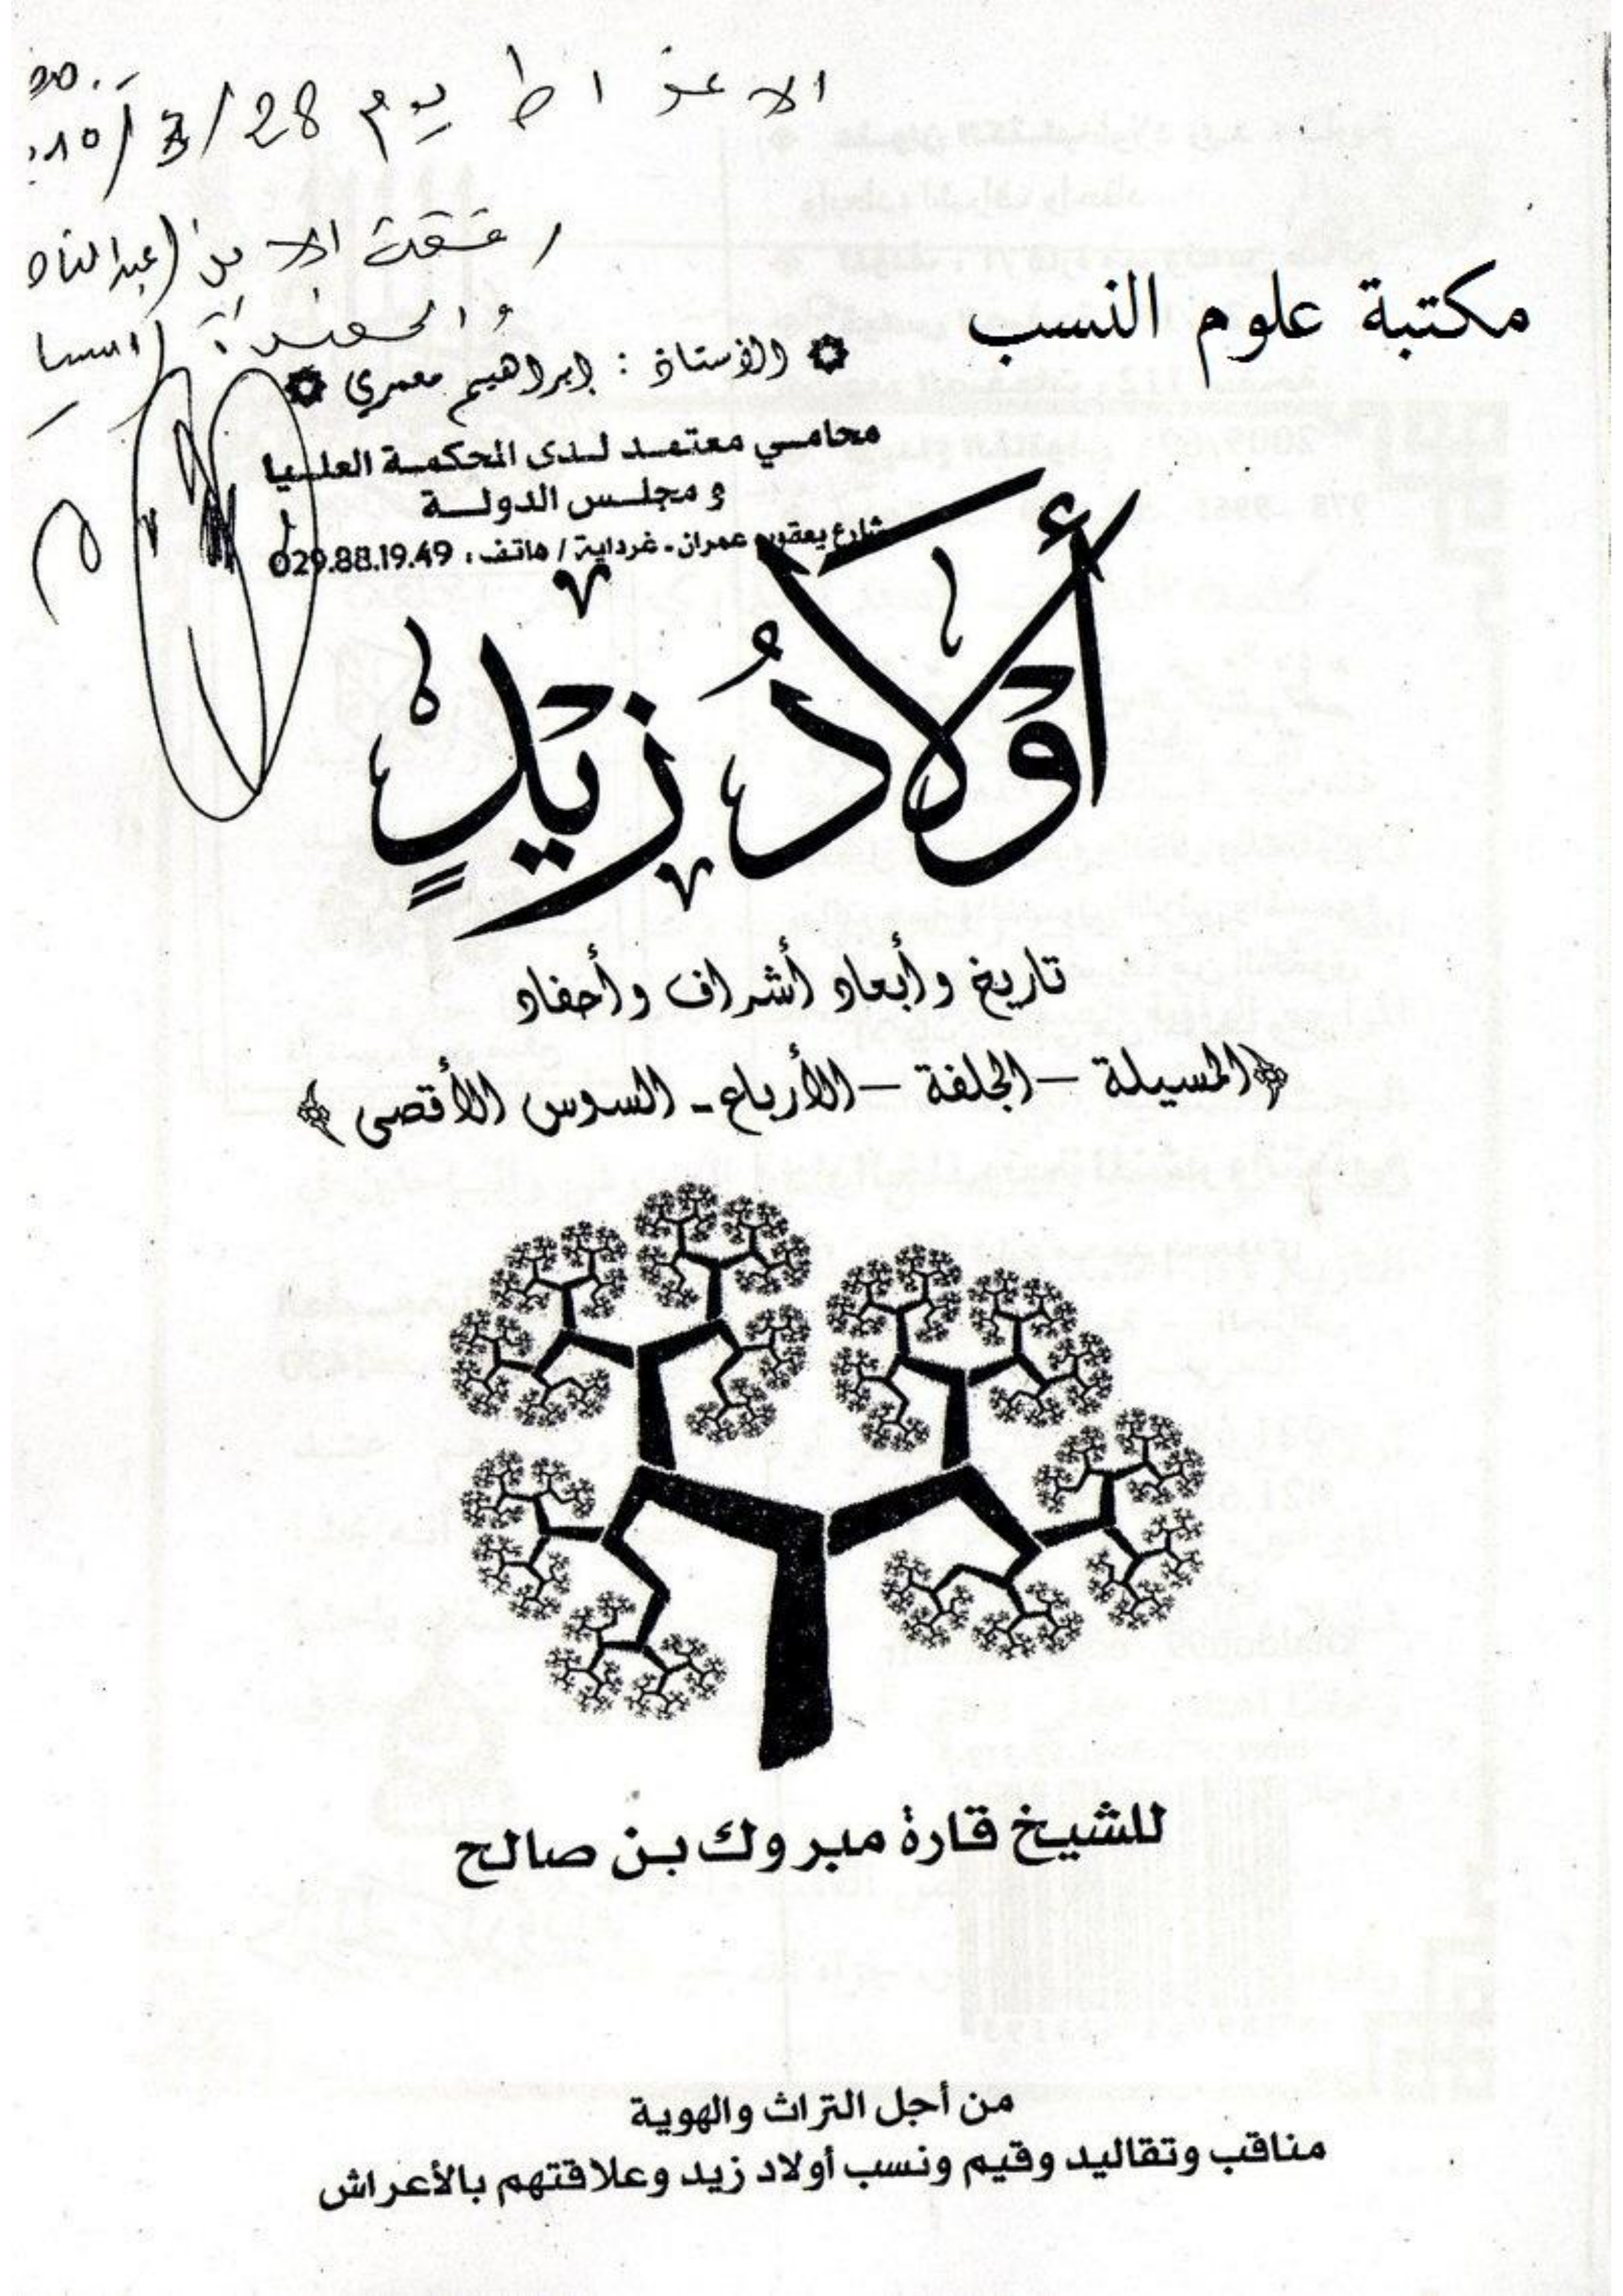 الاغواط يوم 28/3/
مكتبة علوم النسب
الأستاذ : إبراهيم معمري
محامي معتمد لدى المحكمة العليا
و مجلس الدولة
شارع يعقوب عمران - غرداية / هاتف : 029.88.19.49
أَوْلَادُ زَيْدٍ
تاريخ وأبعاد أشراف وأحفاد
﴿المسيلة – الجلفة – الأرباع - السوس الأقصى﴾
للشيخ قارة مبروك بن صالح
من أجل التراث والهوية
مناقب وتقاليد وقيم ونسب أولاد زيد وعلاقتهم بالأعراش